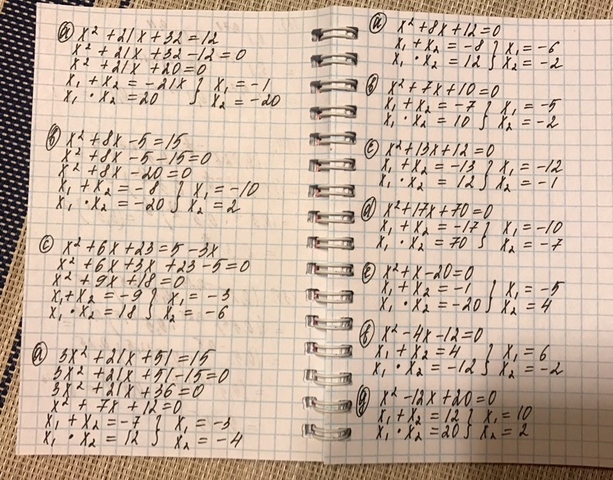 a) x² + 21x + 32 = 12
x² + 21x + 32 - 12 = 0
x² + 21x + 20 = 0
x₁ + x₂ = -21x } x₁ = -1
x₁ · x₂ = 20 } x₂ = -20
b) x² + 8x - 5 = 15
x² + 8x - 5 - 15 = 0
x² + 8x - 20 = 0
x₁ + x₂ = -8 } x₁ = -10
x₁ · x₂ = -20 } x₂ = 2
c) x² + 6x + 23 = 5 - 3x
x² + 6x + 3x + 23 - 5 = 0
x² + 9x + 18 = 0
x₁ + x₂ = -9 } x₁ = -3
x₁ · x₂ = 18 } x₂ = -6
d) 3x² + 21x + 51 = 15
3x² + 21x + 51 - 15 = 0
3x² + 21x + 36 = 0
x² + 7x + 12 = 0
x₁ + x₂ = -7 } x₁ = -3
x₁ · x₂ = 12 } x₂ = -4
a) x² + 8x + 12 = 0
x₁ + x₂ = -8 } x₁ = -6
x₁ · x₂ = 12 } x₂ = -2
b) x² + 7x + 10 = 0
x₁ + x₂ = -7 } x₁ = -5
x₁ · x₂ = 10 } x₂ = -2
c) x² + 13x + 12 = 0
x₁ + x₂ = -13 } x₁ = -12
x₁ · x₂ = 12 } x₂ = -1
d) x² + 17x + 70 = 0
x₁ + x₂ = -17 } x₁ = -10
x₁ · x₂ = 70 } x₂ = -7
e) x² + x - 20 = 0
x₁ + x₂ = -1 } x₁ = -5
x₁ · x₂ = -20 } x₂ = 4
f) x² - 4x - 12 = 0
x₁ + x₂ = 4 } x₁ = 6
x₁ · x₂ = -12 } x₂ = -2
g) x² - 12x + 20 = 0
x₁ + x₂ = 12 } x₁ = 10
x₁ · x₂ = 20 } x₂ = 2